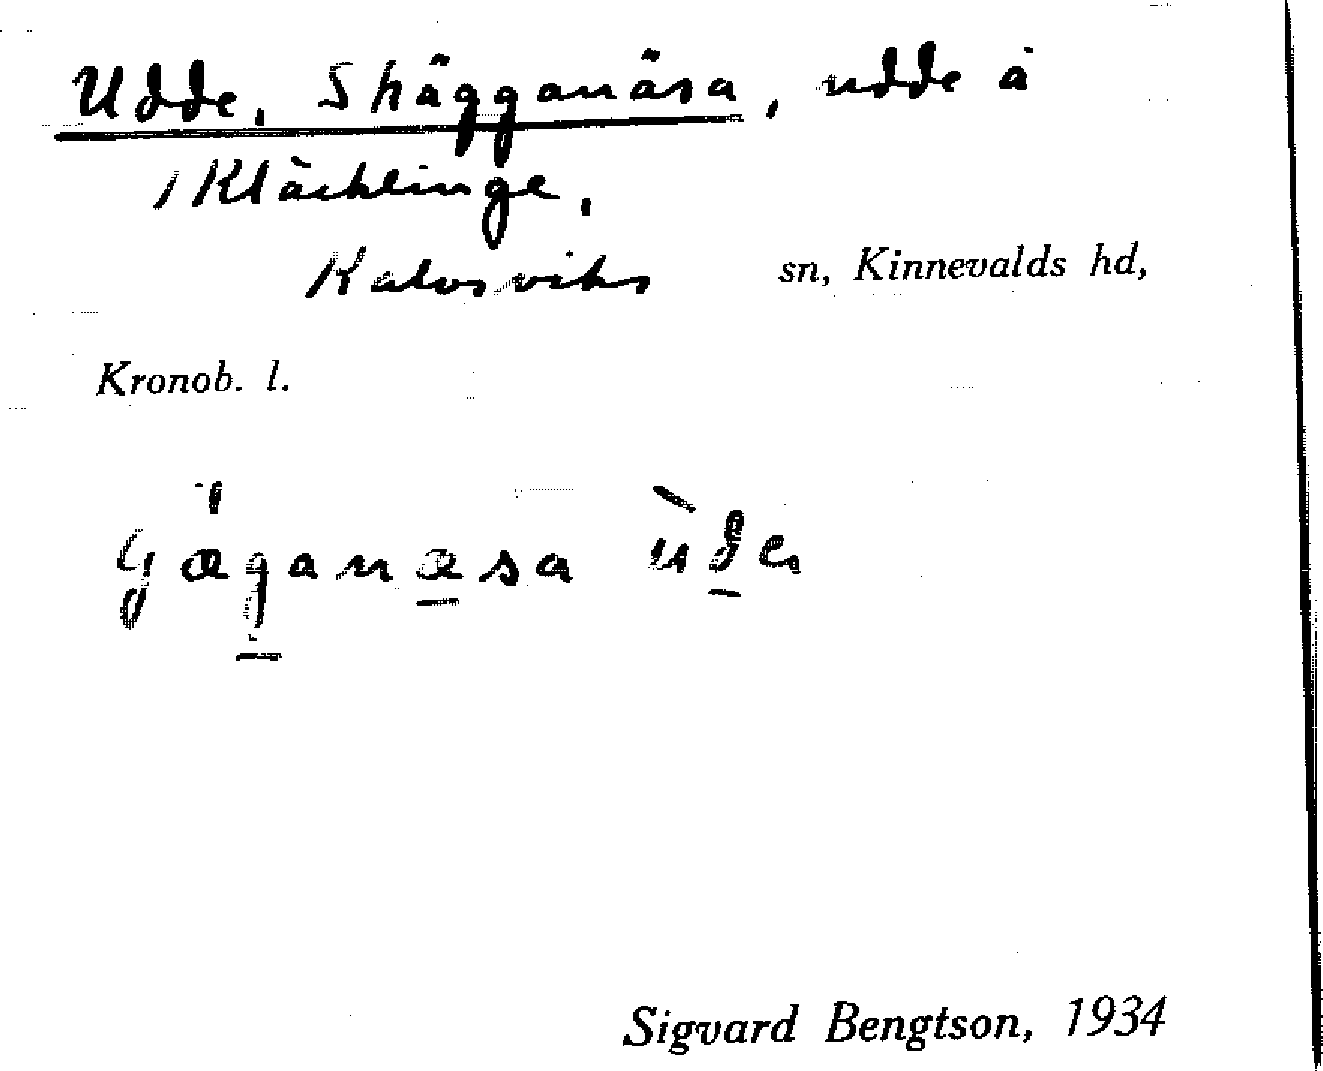 Udde, Skägganäsa, udde å
Kläcklinge,
Kalvsviks sn, Kinnevalds hd,
Kronob. l.
Sigvard Bengtson, 1934